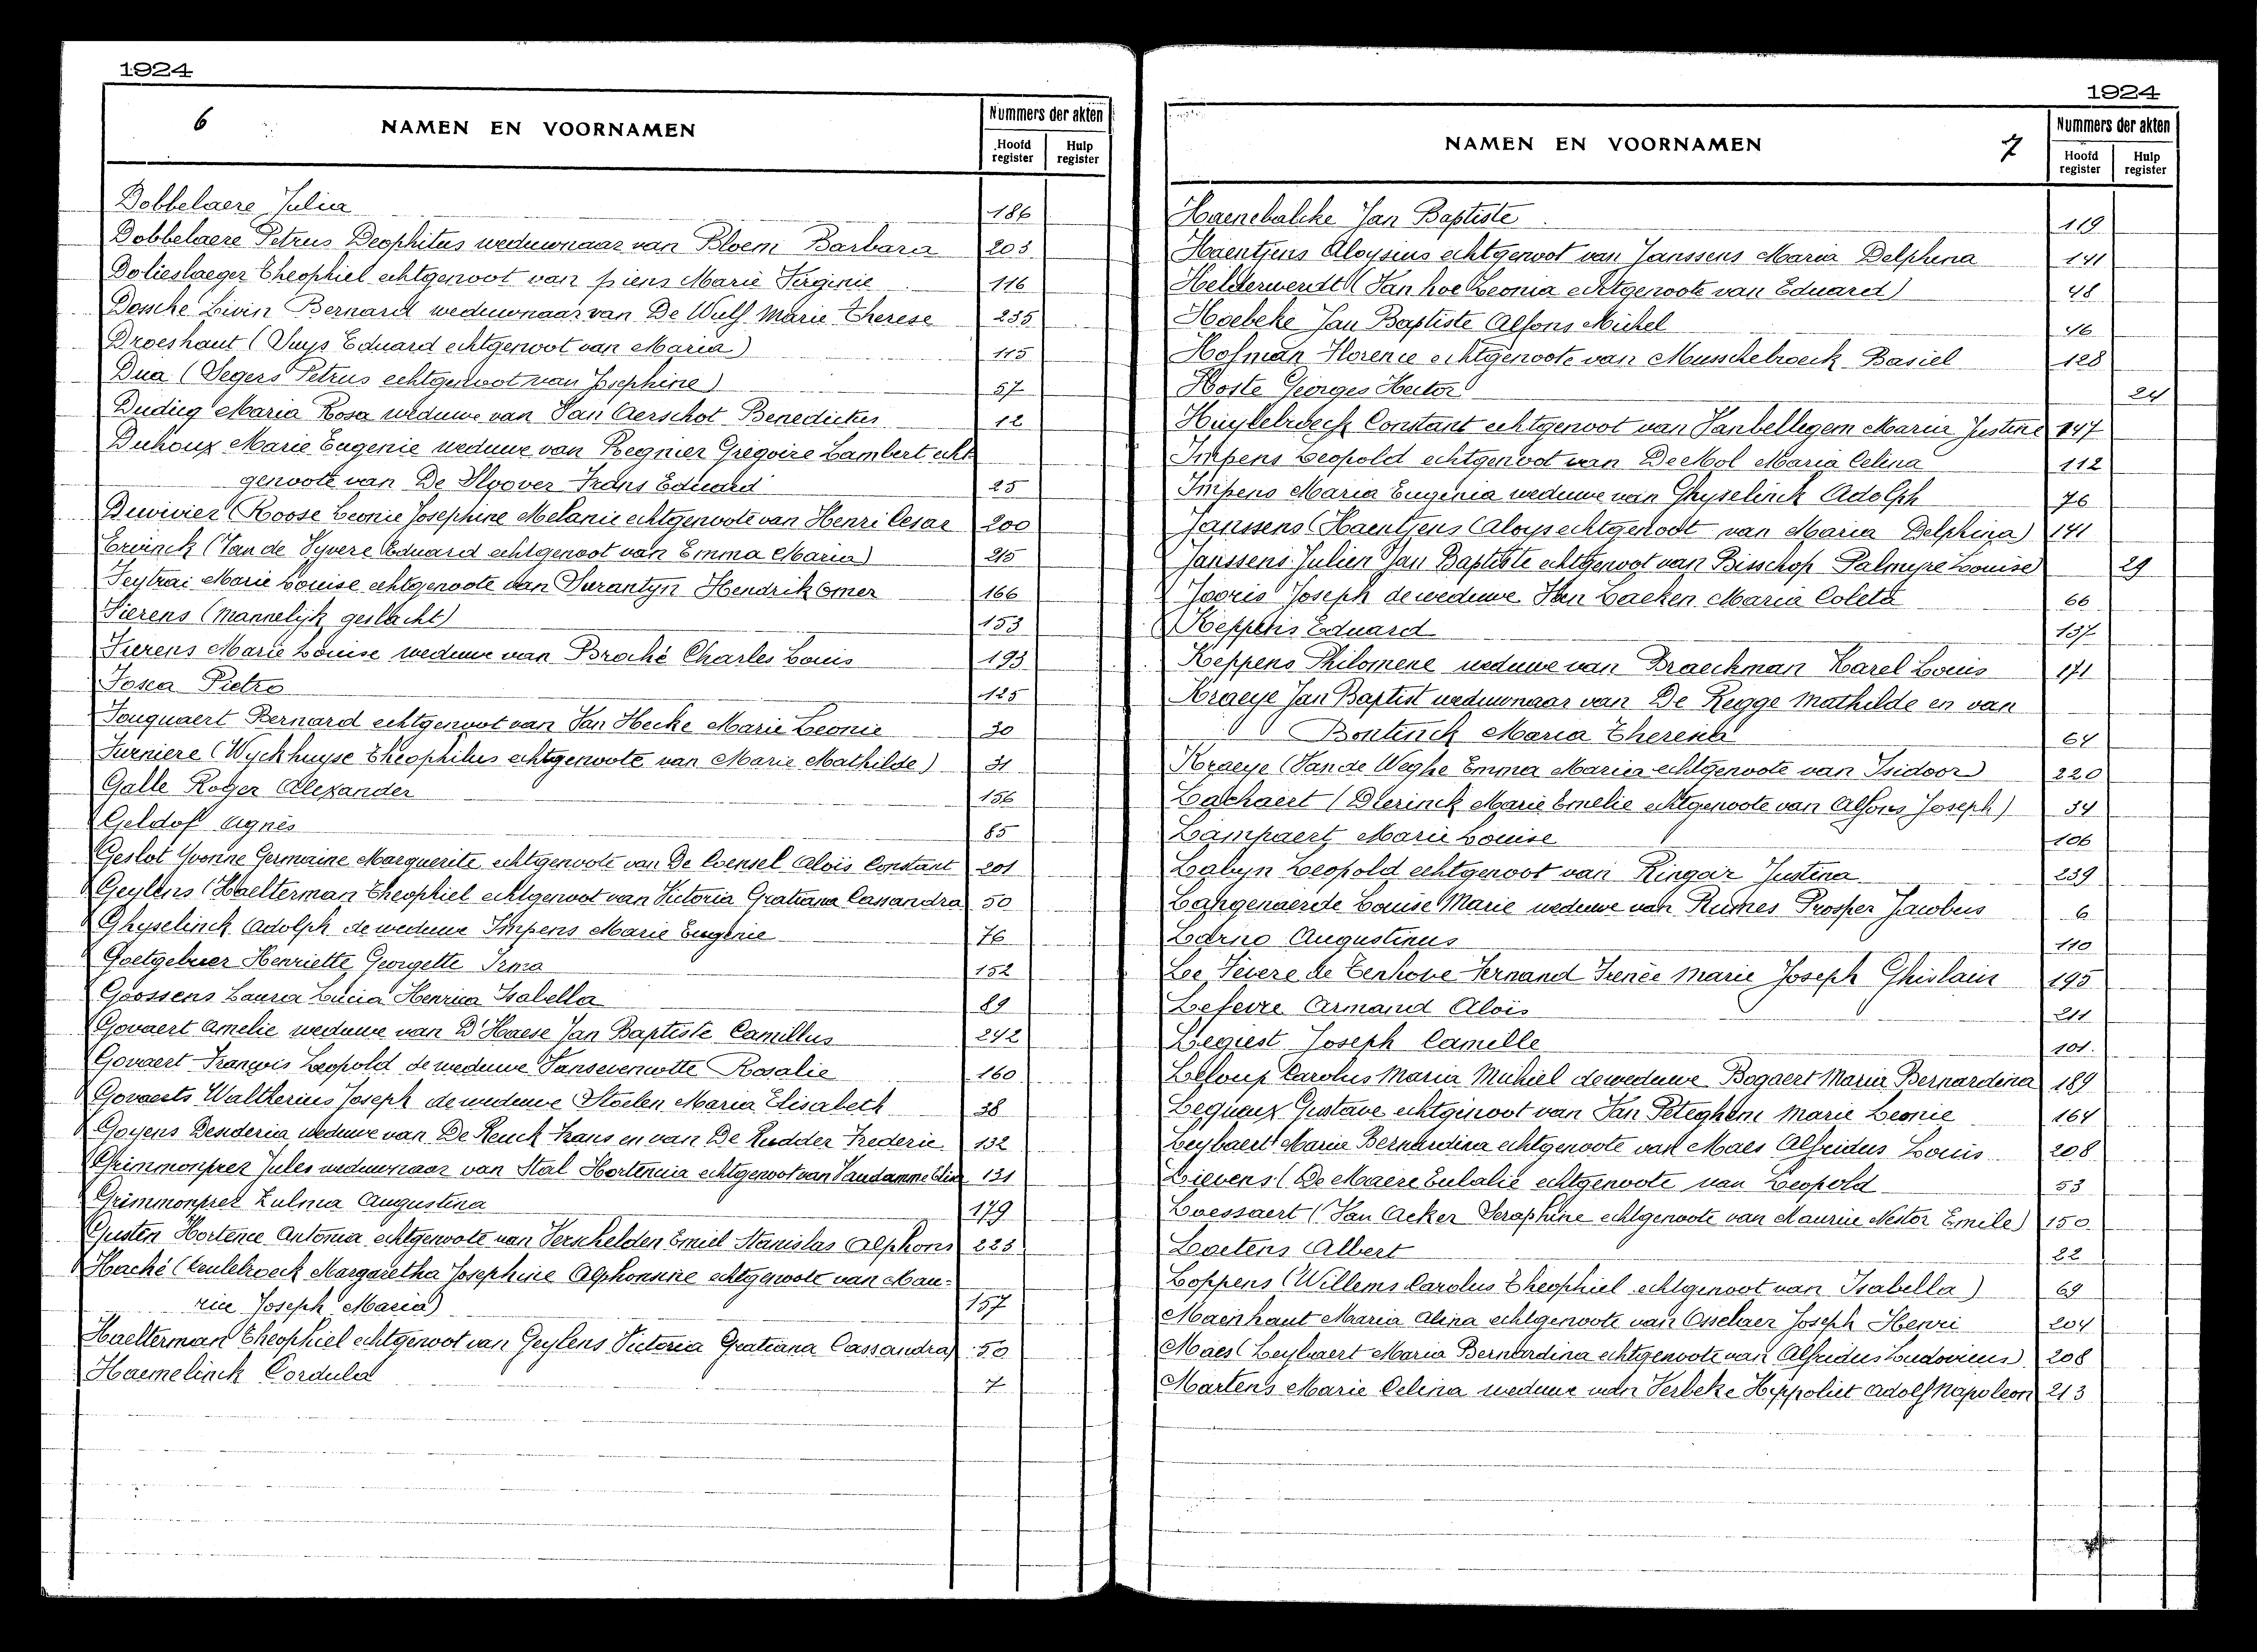 1924
6 NAMEN EN VOORNAMEN
Nummers der akten
Hoofd register Hulp register
Dobbelaere Julia 186
Dobbelaere Petrus Deophitus weduwnaar van Bloem Barbara 203
Dolieslaeger Theophiel echtgenoot van piens Marie Virginie 116
Dossche Livin Bernard weduwnaar van De Wulf Marie Therese 235
Droeshaut (Suys Eduard echtgenoot van Maria) 115
Dua (Segers Petrus echtgenoot van Josephine) 57
Dudieg Maria Rosa weduwe van Van Aerschot Benedictus 12
Duhoux Marie Eugenie weduwe van Regnier Gregoire Lambert echt
genoote van De Sloover Frans Eduard 25
Duvivier (Roose Leonie Josephine Melanie echtgenoote van Henri Cesar 200
Ervinck (Van de Vyvere Eduard echtgenoot van Emma Maria) 215
Feytrai Marie Louise echtgenoote van Surantyn Hendrik Omer 166
Fierens (mannelijk geslacht) 153
Fierens Marie Louise weduwe van Broché Charles Louis 193
Fosca Pietro 125
Fouquaert Bernard echtgenoot van Van Hecke Marie Leonie 30
Furniere (Wyckhuyse Theophilus echtgenoote van Marie Mathilde) 31
Galle Roger Alexander 156
Geldof Agnès 85
Geslot Yvonne Germaine Marguerite echtgenoote van De Coensel Aloïs Constant 201
Geylens (Haelterman Theophiel echtgenoot van Victoria Gratiana Cassandra 50
Ghyselinck Adolph de weduwe Impens Marie Eugenie 76
Goetgebuer Henriette Georgette Irma 152
Goossens Laura Lucia Henrica Isabella 89
Govaert Amelie weduwe van D'Haese Jan Baptiste Camillus 242
Govaert François Leopold de weduwe Vansevencotte Rosalie 160
Govaerts Waltherius Joseph de weduwe Stoelen Maria Elisabeth 38
Goyens Desideria weduwe van De Keuck Frans en van De Rudder Frederic 132
Grimmonprez Jules weduwnaar van Stal Hortencia echtgenoot van Vandamme Elisa 131
Grimmonprez Zulma Augustina 179
Gusten Hortence Antonia echtgenoote van Verschelden Emiel Stanislas Alphons 223
Haché (Ceulebroeck Margaretha Josephine Alphonsine echtgenoote van Mau-
rice Joseph Maria) 157
Haelterman Theophiel echtgenoot van Geylens Victoria Gratiana Cassandra) 50
Haemelinck Cordula 7
1924
NAMEN EN VOORNAMEN 7
Nummers der akten
Hoofd register Hulp register
Haenebalcke Jan Baptiste 119
Haentjens Aloysius echtgenoot van Janssens Maria Delphina 141
Helderwerdt (Van hoe Leonia echtgenoote van Eduard) 48
Hoebeke Jan Baptiste Alfons Michel 46
Hofman Florence echtgenoote van Musschebroeck Basiel 128
Hoste Georges Hector 24
Huylebroeck Constant echtgenoot van Vanbellegem Maria Justine 147
Impens Leopold echtgenoot van De Mol Maria Celina 112
Impens Maria Eugenia weduwe van Ghyselinck Adolph 76
Janssens (Haentjens Aloys echtgenoot van Maria Delphina) 141
Janssens Julien Jan Baptiste echtgenoot van Bisschop Palmyre Louise 29
Jooris Joseph de weduwe Van Laeken Maria Coleta 66
Keppens Eduard 137
Keppens Philomene weduwe van Braeckman Karel Louis 171
Kraeye Jan Baptist weduwnaar van De Regge Mathilde en van
Bontinck Maria Theresia 64
Kraeye (Van de Weghe Emma Maria echtgenoote van Isidoor) 220
Lachaert (Dierinck Marie Emelie echtgenoote van Alfons Joseph) 34
Lampaert Marie Louise 106
Labyn Leopold echtgenoot van Ringoir Justina 239
Langenaerde Louise Marie weduwe van Rumes Prosper Jacobus 6
Larno Augustinus 110
Lee Fevere de Tenhove Fernand Irenée Marie Joseph Ghislain 195
Lefevre Armand Alois 211
Legiest Joseph Camille 101
Leloup Carolus Maria Michiel de weduwe Bogaert Maria Bernardina 189
Lequeux Gustave echtgenoot van Van Peteghem Marie Leonie 164
Leybaert Maria Bernardina echtgenoote van Maes Alfridus Louis 208
Lievens (De Maere Eulalie echtgenoote van Leopold 53
Loessaert (Van Acker Seraphine echtgenoote van Maurice Nestor Emile) 150
Lootens Albert 22
Loppens (Willems Carolus Theophiel echtgenoot van Isabella) 69
Maenhaut Maria Alina echtgenoote van Osselaer Joseph Henri 204
Maes (Leybaert Maria Bernardina echtgenoote van Alfridus Ludovicus) 208
Martens Marie Celina weduwe van Verbeke Hippoliet Adolf Napoleon 213